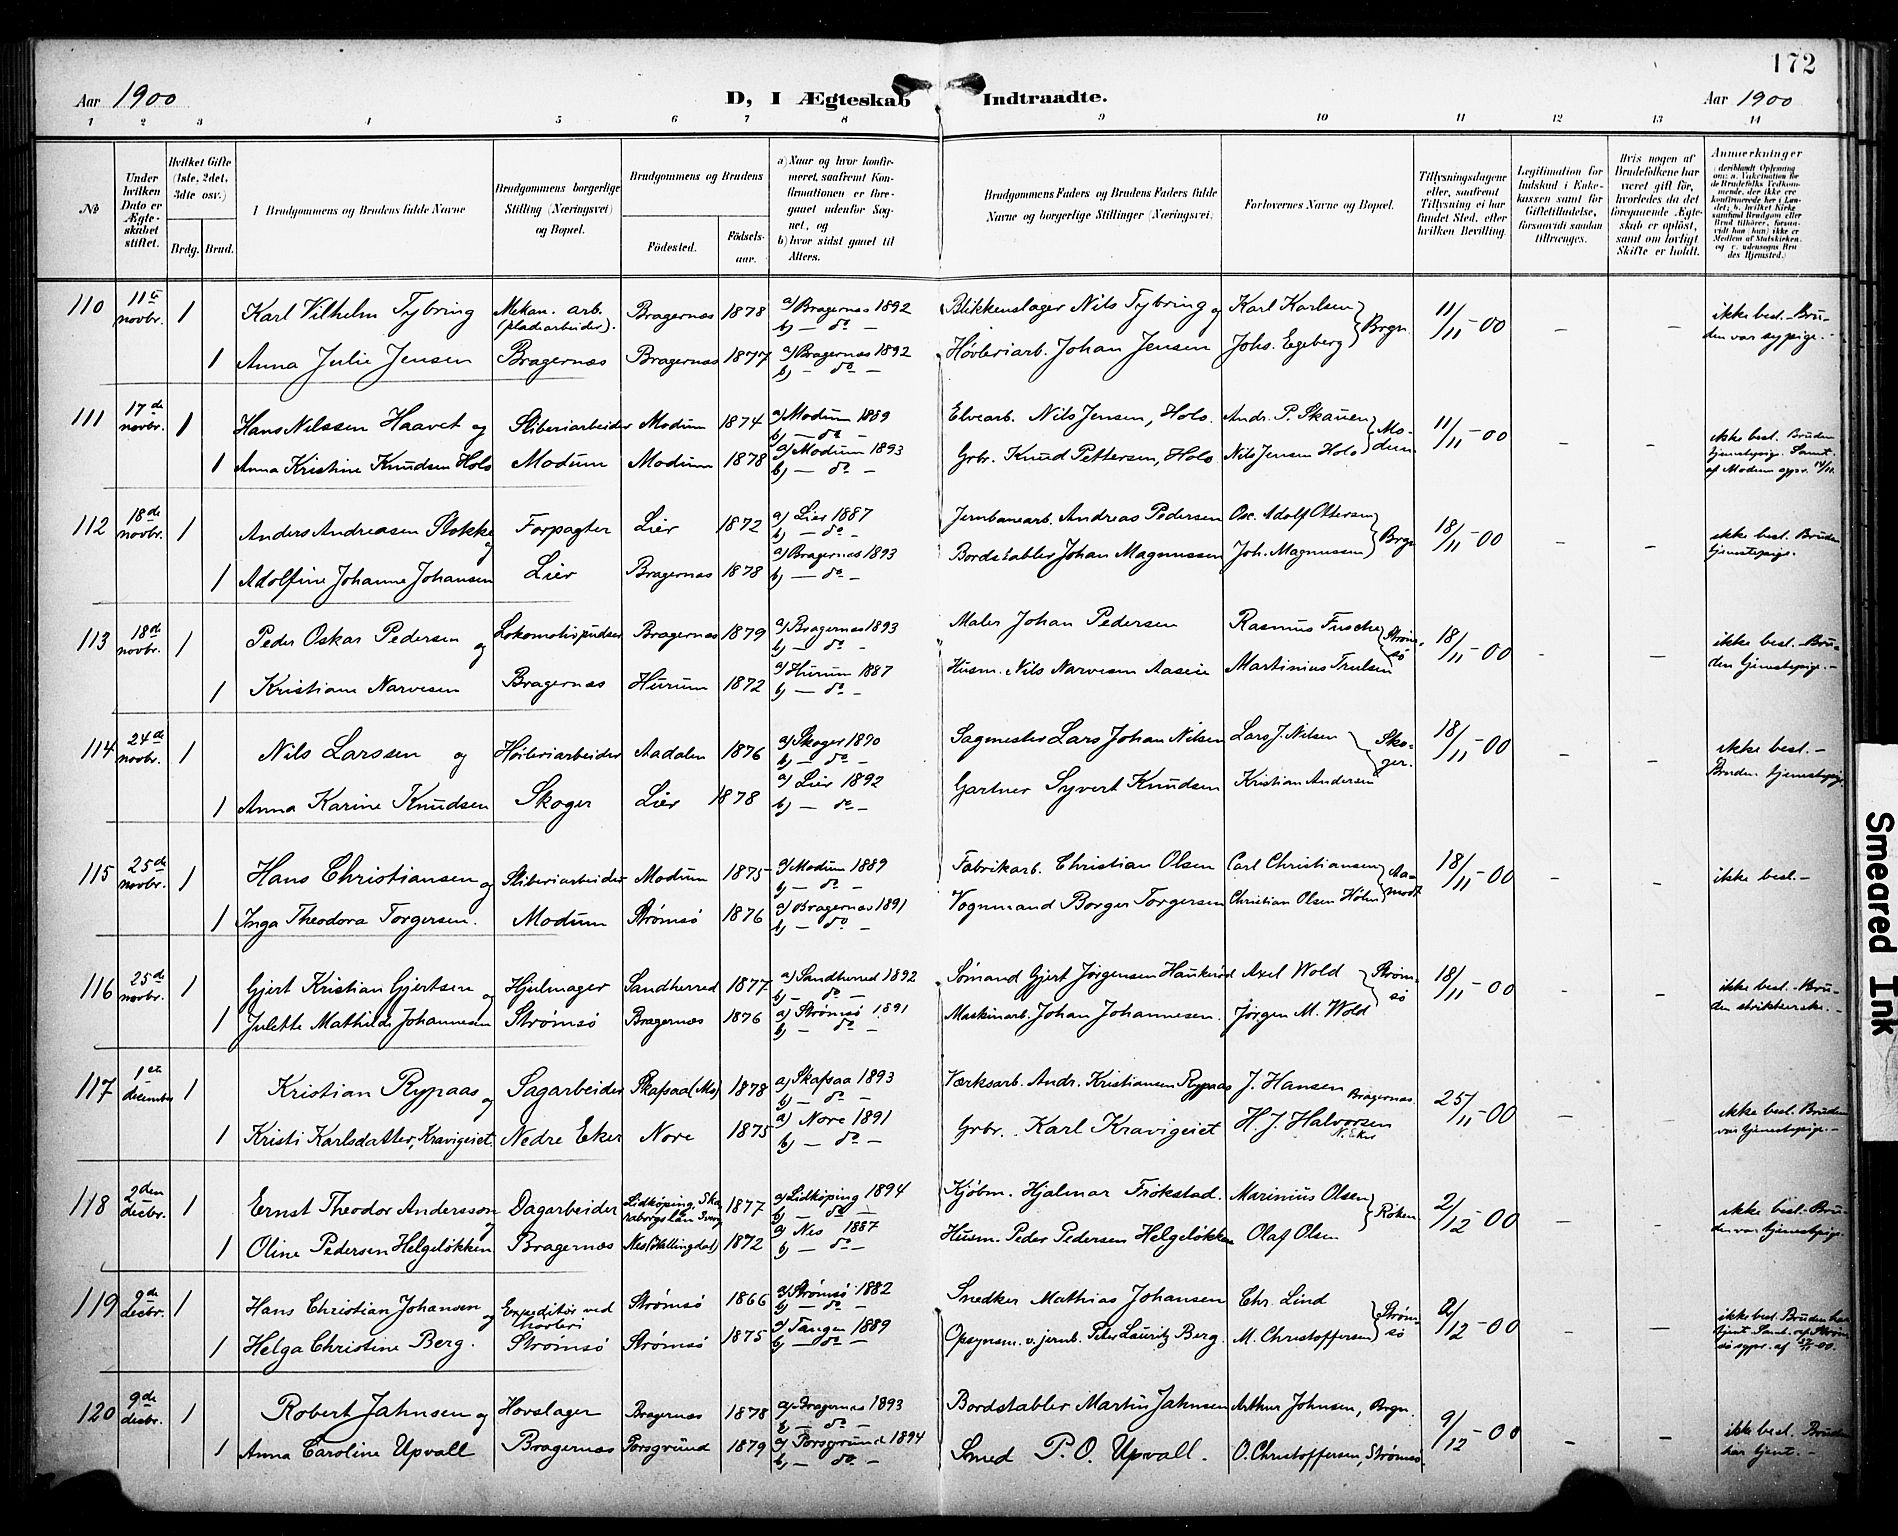 172
Aar 1900
D, I Ægteskab Indtraadte.
Aar 1900
1 2 3 4 5 6 7 8 9 10 11 12 13 14
№
Under hvilken Dato er Ægteskabet stiftet.
Hvilket Gifte (1ste, 2det, 3die osv.)
Brdg. Brud.
Brudgommens og Brudens fulde Navne
Brudgommens borgerlige Stilling (Næringsvei) og Bopæl.
Brudgommens og Brudens
Födested.
Födselsaar.
a) Naar og hvor konfirmeret, saafremt Konfirmationen er foregaaet udenfor Sognet, og
b) hvor sidst gaaet til Alters.
Brudgommens Faders og Brudens Faders fulde Navne og borgerlige Stillinger (Næringsvei)
Forlovernes Navne og Bopæl.
Tillysningsdagene eller, saafremt Tillysning ei har fundet Sted, efter hvilken Bevilling.
Legitimation for Indskud i Enkekassen samt for Giftetilladelse, forsaavidt saadan tiltrænges.
Hvis nogen af Brudefolkene har været gift før, hvorledes da det foregaaende Ægteskab er oplöst, samt om lovligt Skifte er holdt.
Anmerkninger
110 11te novbr. 1 Karl Vilhelm Tybring Mekan. arb. (pladearbeider). Bragernæs 1878 a) Bragernæs 1892 b) – do – Blikkenslager Nils Tybring og Karl Karlsen Brgn. 11/11-00 – – ikke besl. – Bruden var sypige. –
1 Anna Julie Jensen Bragernæs Bragernæs 1877 a) Bragernæs 1892 b) – do – Høvleriarb. Johan Jensen Johs. Egeberg
111 17de novbr. 1 Hans Nilssen Haavet og Sliberiarbeider Modum 1874 a) Modum 1889 b) – do – Elvearb. Nils Jensen, Hols. Andr. P. Skauen Modum 11/11-00 – – ikke besl. Bruden tjenestepige.
1 Anna Kristine Knudsen Hols Modum Modum 1878 a) Modum 1893 b) – do – Grbr. Knud Pettersen, Hols. Nils Jensen Hols
112 18de novbr. 1 Anders Andreasen Stokke og Forpagter Lier 1872 a) Lier 1887 b) – do – Jernbanearb. Andreas Pedersen Osc. Adolf Ottersen Brgn 18/11-00 – – ikke besl. Bruden tjenestepige.
1 Adolfine Johanne Johansen Lier Bragernæs 1878 a) Bragernæs 1893 b) – do – Bordstabler Johan Magnussen Joh. Magnussen
113 18de novbr. 1 Peder Oskar Pedersen og Lokomotivpudser Bragernæs 1879 a) Bragernæs 1893 b) – do – Maler Johan Pedersen Rasmus Fusche Strømsö 18/11-00 – – ikke besl. – Bruden tjenestepige. –
1 Kristiane Narvesen Bragernæs Hurum 1872 a) Hurum 1887 b) – do – Husm. Nils Narvesen Aaseie Martinius Trulsen
114 24de novbr. 1 Nils Larssen og Høvleriarbeider Aadalen 1876 a) Skoger 1890 b) – do – Sagmester Lars Johan Nilsen Lars J. Nilsen Skoger. 18/11-00 – – ikke besl. – Bruden tjenestepige.
1 Anna Karine Knudsen Skoger Lier 1878 a) Lier 1892 b) – do – Gartner Syvert Knudsen Kristian Andersen
115 25de novbr. 1 Hans Christiansen og Sliberiarbeider Modum 1875 a) Modum 1889 b) – do – Fabrikarb. Christian Olsen Carl Christiansen Aamodt 18/11-00 – – ikke besl. –
1 Inga Theodora Torgersen. Modum Strømsö 1876 a) Bragernæs 1891 b) – do Vognmand Borger Torgersen Christian Olsen Holm
116 25de novbr. 1 Gjert Kristian Gjertsen og Hjulmager Sandherred 1877 a) Sandherred 1892 b) – do – Sømand Gjert Jørgensen Haukerød Axel Wold Strømsö 18/11-00 – – ikke besl. – Bruden strikkerske. –
1 Julette Mathilde Johannesen Strømsö Bragernæs 1876 a) Strømsö 1891 b) – do – Maskinarb. Johan Johannesen. Jørgen M. Wold
117 1ste december 1 Kristian Rypaas og Sagarbeider Skafsaa (Mo) 1878 a) Skafsaa 1893 b) – do – Værksarb. Andr. Kristiansen Rypaas J. Hansen Bragernæs. 25/11-00 – – ikke besl. Bruden var tjenestepige. –
1 Kristi Karlsdatter, Kravigeiet Nedre Eker Nore 1875 a) Nore 1891 b) – do – Grbr. Karl Kravigeiet H. J. Halvorsen N. Eker
118 2den decbr. 1 Ernst Theodor Andersson og Dagarbeider Lidköping, Skaraborgs län Sverg 1877 a) Lidköping 1894 b) – do – Kjøbm. Hjalmar Frökstad. Marinius Olsen Röken 2/12-00 – – ikke besl. – Bruden var tjenestepige.
1 Oline Pedersen Helgeløkken Bragernæs Nes (Hallingdal) 1872 a) Nes 1887 b) – do – Husm. Peder Pedersen Helgeløkken Olaf Olsen
119 9de decbr. 1 Hans Christian Johansen og Expeditör ved Strømsö 1866 a) Strømsö 1882 b) – do – Snedker Mathias Johansen Chr. Lind Strømsö 2/12-00 – – ikke besl. Bruden har tjent.
1 Helga Christine Berg. Strømsö Strømsö 1875 a) Tangen 1889 b) – do – Opsynsm. v. jernb. Peter Lauritz Berg. M. Christoffersen
120 9de decbr. 1 Robert Jahnsen og Hovslager Bragernæs 1878 a) Bragernæs 1893 b) – do – Bordstabler Martin Jahnsen Arthur Johnsen, Brgn. 9/12-00 – – ikke besl. Bruden har tjent. –
1 Anna Caroline Upvall Bragernæs Porsgrund 1879 a) Porsgrund 1894 b) – do. – Smed P. O. Upvall. O. Christoffersen, Strømsö
Smeared Ink